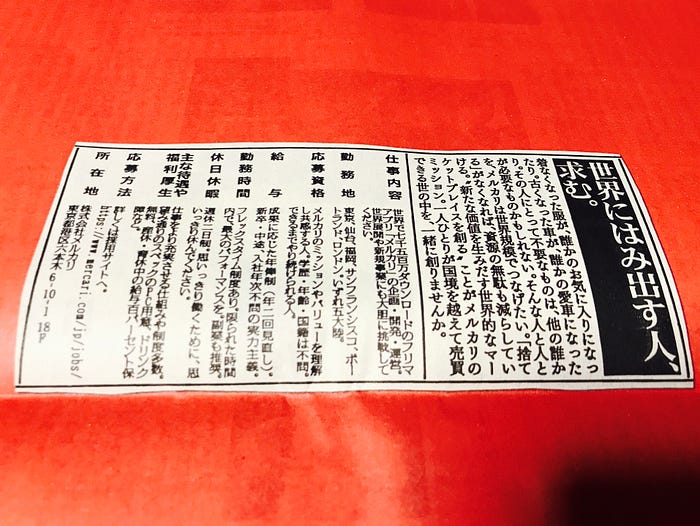 世界にはみ出す人、
求む。
着なくなった服が、誰かのお気に入りになっ
たり。古くなった車が、誰かの愛車になった
り。その人にとって不要なものは、他の誰か
が必要なものかもしれない。そんな人と人と
を、メルカリは世界規模でつなげたい。「捨て
る」がなくなれば、資源の無駄も減らしてい
ける。“新たな価値を生みだす世界的なマー
ケットプレイスを創る”ことがメルカリの
ミッション。一人ひとりが国境を越えて売買
できる世の中を、一緒に創りませんか。
仕事内容
世界で七千五百万ダウンロードのフリマ
アプリ「メルカリ」の企画・開発・運営。
世界展開や新規事業にも大胆に挑戦して
ください。
勤務地
東京、仙台、福岡、サンフランシスコ、ポー
トランド、ロンドン。いずれ五大陸。
応募資格
メルカリのミッションやバリューを理解
し共感する人。学歴・年齢・国籍は不問。
できるまでやり続けられる人。
給与
成果に応じた年俸制（年二回見直し）。
新卒・中途、入社年次不問の実力主義。
勤務時間
フレックスタイム制度あり。限られた時間
内で、最大のパフォーマンスを。副業も推奨。
休日休暇
週休二日制。思いっきり働くために、思
いっきり休んでください。
主な待遇や
福利厚生
仕事をより充実させる仕組みや制度多数。
望み通りのスペックのPC用意、ドリンク
無料、産休・育休中の給与百パーセント保
障など。
応募方法
詳しくは採用サイトへ。
https://www.mercari.com/jp/jobs/
所在地
株式会社メルカリ
東京都港区六本木6-10-1 18F